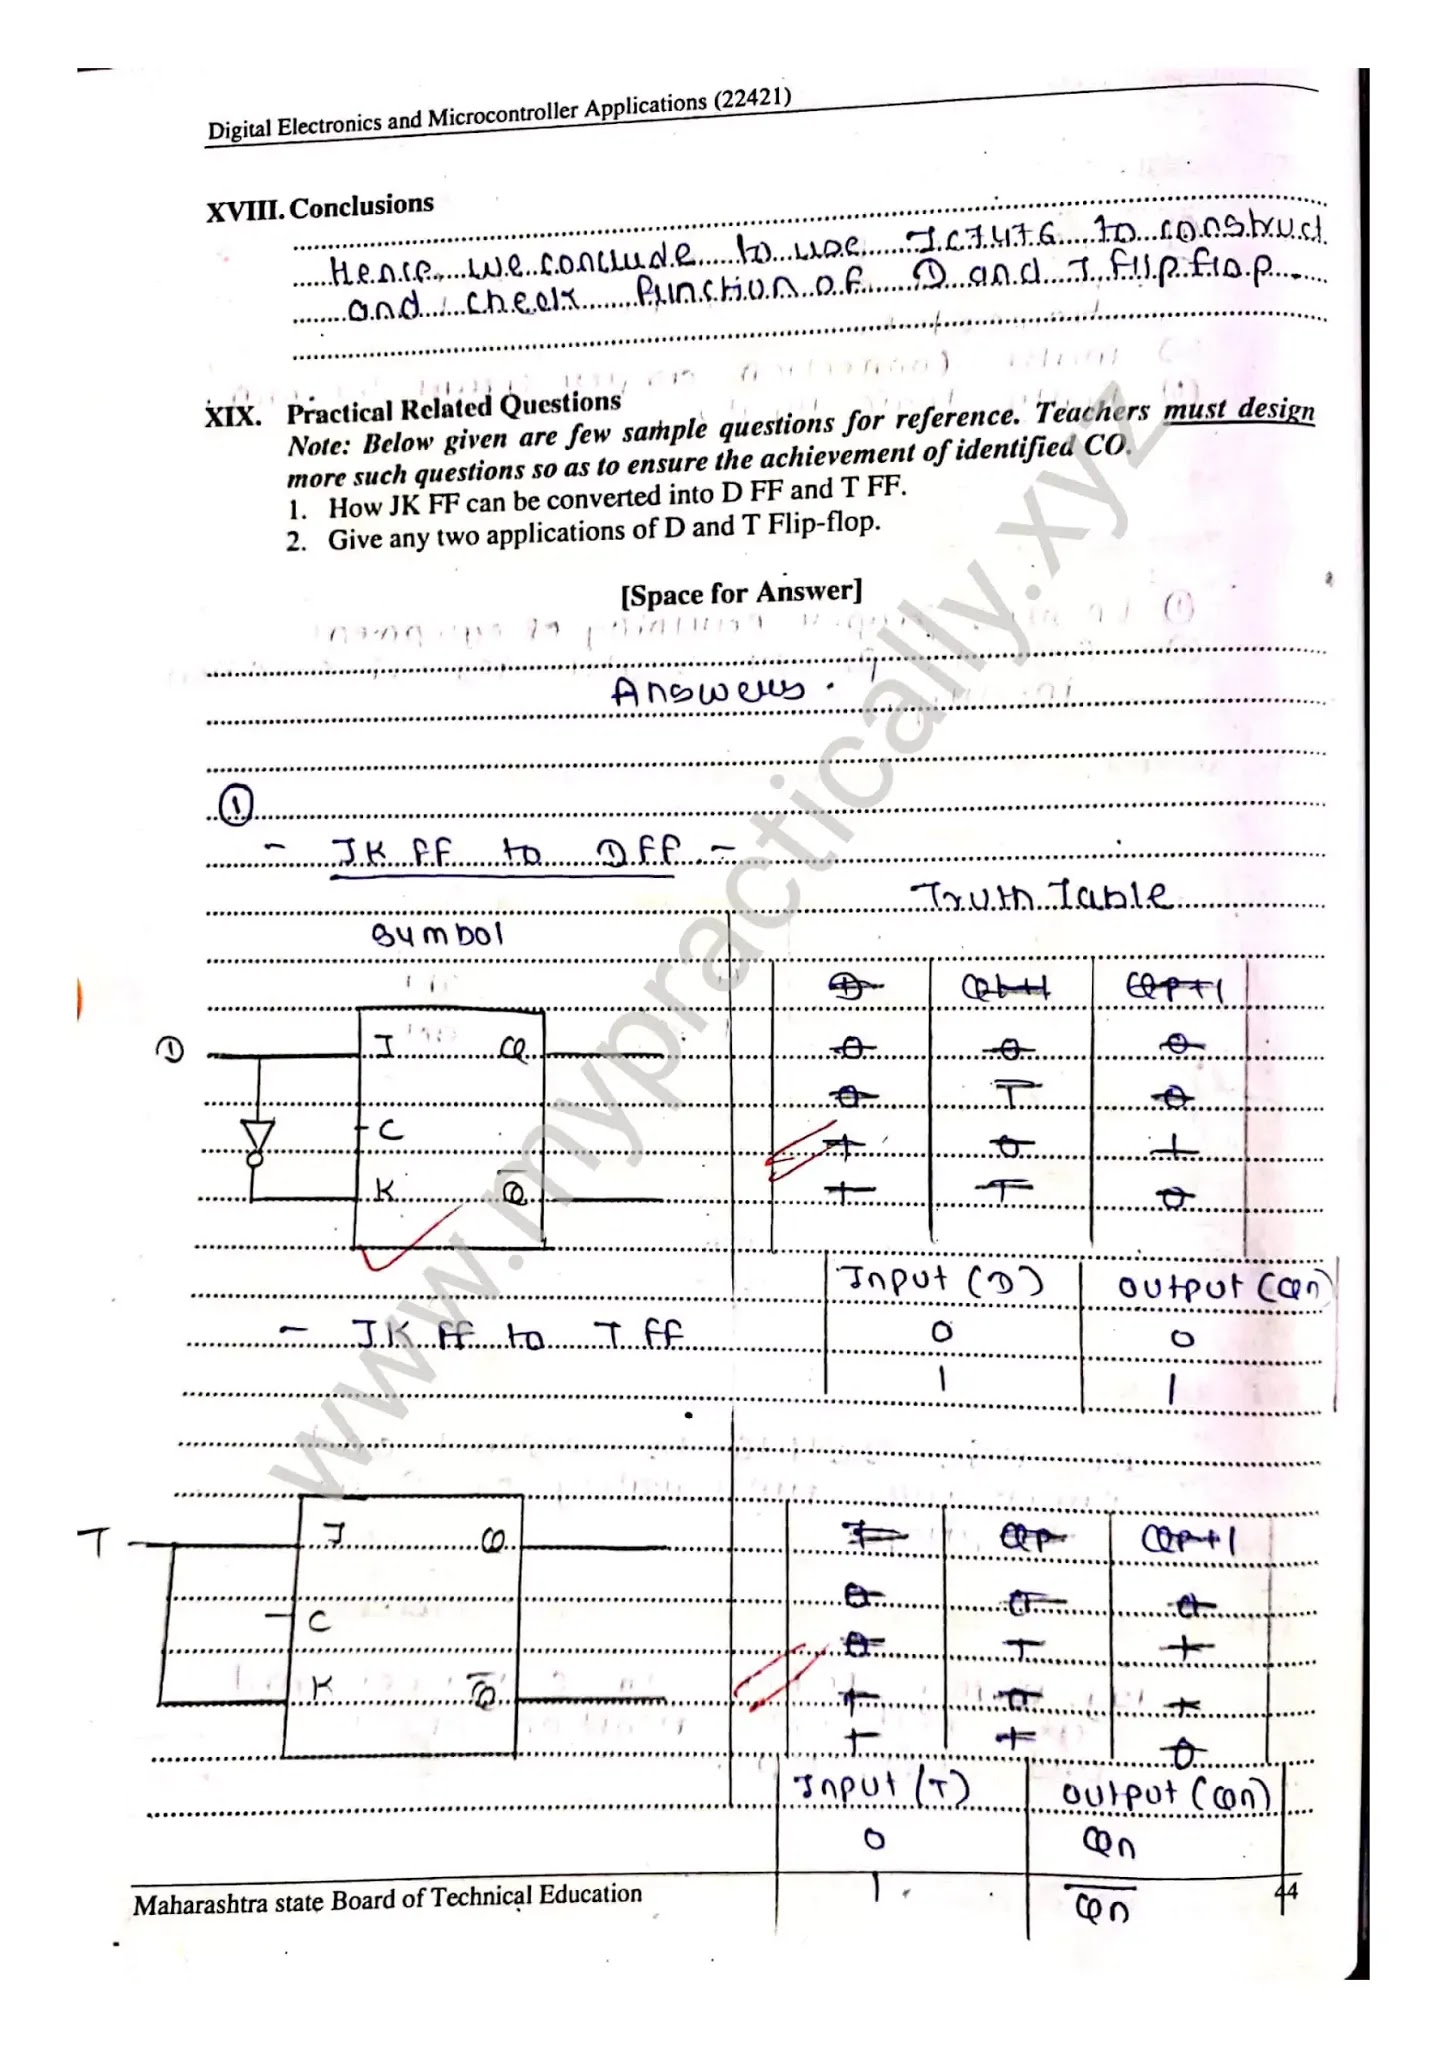 Digital Electronics and Microcontroller Applications (22421)
XVIII. Conclusions
Hence, we conclude to use IC7476 to construct
and check function of D and T flip flop.
XIX. Practical Related Questions
Note: Below given are few sample questions for reference. Teachers must design
more such questions so as to ensure the achievement of identified CO.
1. How JK FF can be converted into D FF and T FF.
2. Give any two applications of D and T Flip-flop.
[Space for Answer]
Answers.
①
- JK FF to D FF. -
Truth Table
Symbol
D
J Q
C
K Q̅
D
0 0 0
0 1 0
1 0 1
1 1 0
Input (D) Output (Qn)
0 0
1 1
- JK FF to T FF
T
J Q
C
K Q̅
T QP QP+1
0 0 0
0 1 1
1 0 1
1 1 0
Input (T) Output (Qn)
0 Qn
1 Q̅n̅
Maharashtra state Board of Technical Education
44
www.mypractically.xyz